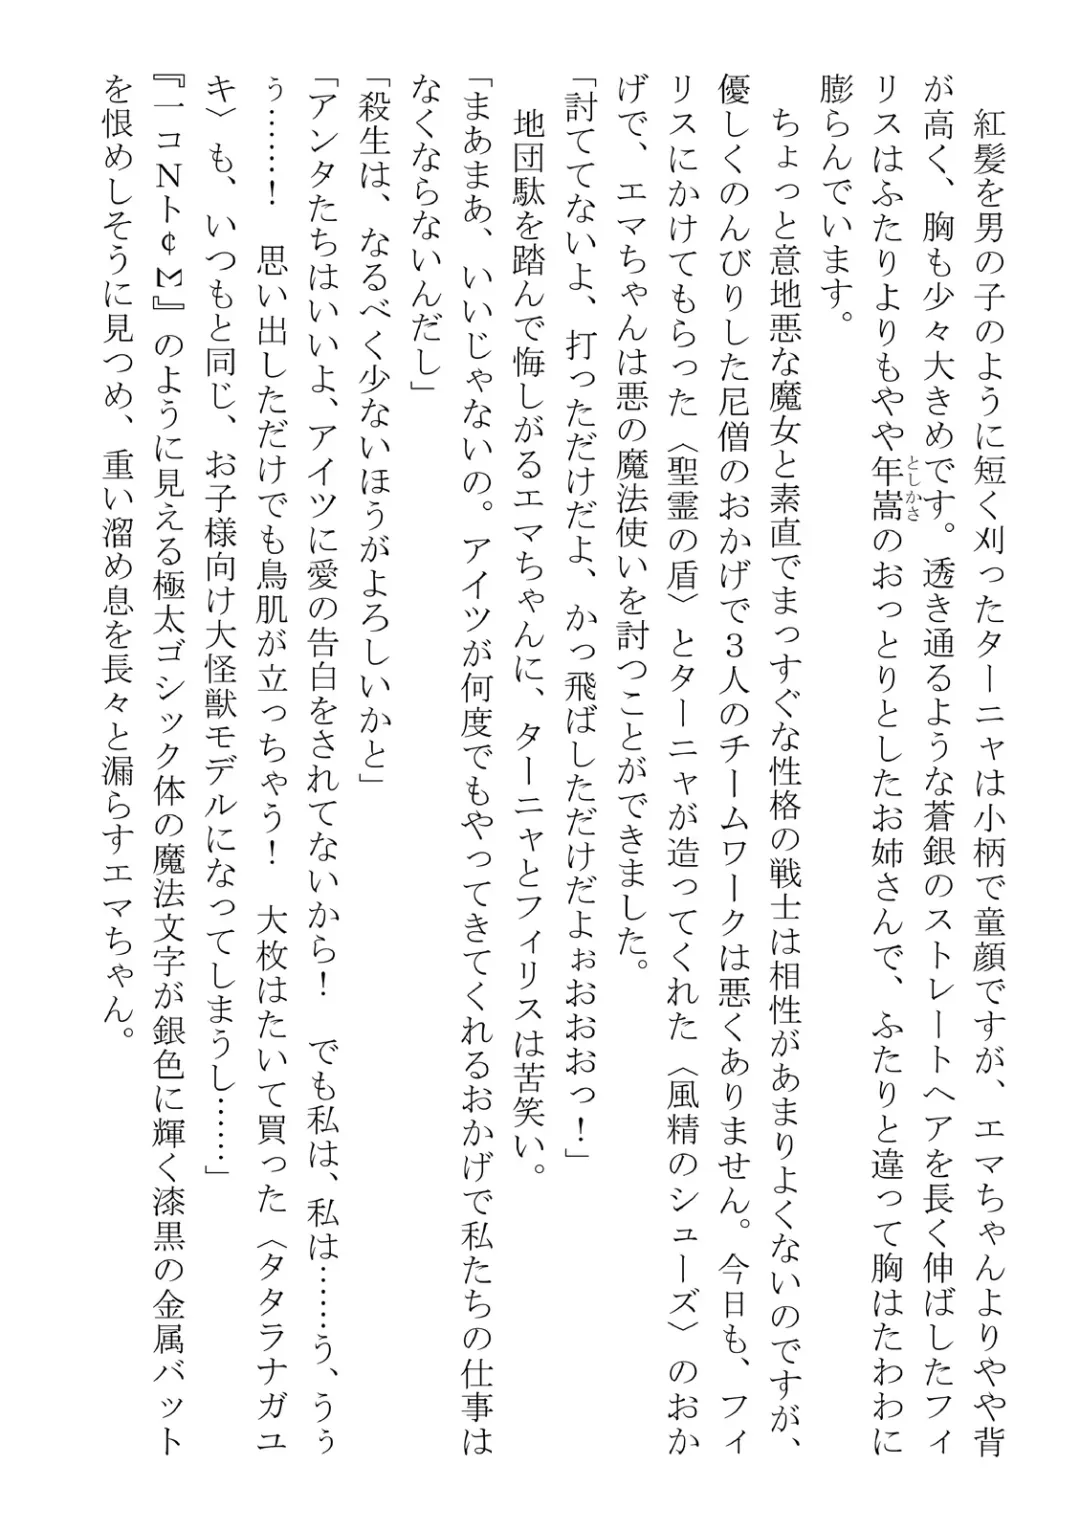 紅髪を男の子のように短く刈ったターニャは小柄で童顔ですが、エマちゃんよりやや背
が高く、胸も少々大きめです。透き通るような蒼銀のストレートヘアを長く伸ばしたフィ
リスはふたりよりもやや年嵩のおっとりとしたお姉さんで、ふたりと違って胸はたわわに
としかさ
膨らんでいます。
　ちょっと意地悪な魔女と素直でまっすぐな性格の戦士は相性があまりよくないのですが、
優しくのんびりした尼僧のおかげで３人のチームワークは悪くありません。今日も、フィ
リスにかけてもらった〈聖霊の盾〉とターニャが造ってくれた〈風精のシューズ〉のおか
げで、エマちゃんは悪の魔法使いを討つことができました。
「討ててないよ、打っただけだよ、かっ飛ばしただけだよぉおおおっ！」
　地団駄を踏んで悔しがるエマちゃんに、ターニャとフィリスは苦笑い。
「まあまあ、いいじゃないの。アイツが何度でもやってきてくれるおかげで私たちの仕事は
なくならないんだし」
「殺生は、なるべく少ないほうがよろしいかと」
「アンタたちはいいよ、アイツに愛の告白をされてないから！　でも私は、私は……う、うぅ
ぅ……！　思い出しただけでも鳥肌が立っちゃう！　大枚はたいて買った〈タタラナガユ
キ〉も、いつもと同じ、お子様向け大怪獣モデルになってしまうし……」
『一コNト¢M』のように見える極太ゴシック体の魔法文字が銀色に輝く漆黒の金属バット
を恨めしそうに見つめ、重い溜め息を長々と漏らすエマちゃん。